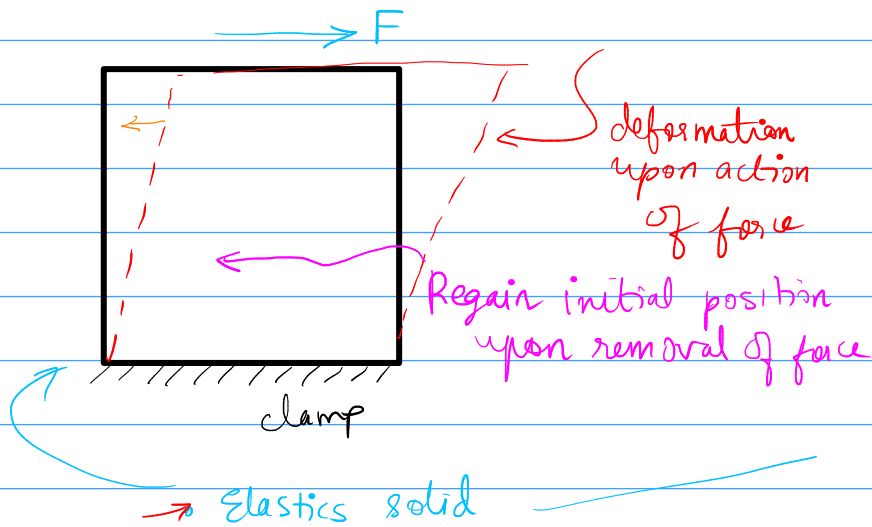 F
deformation
upon action
of force
Regain initial position
upon removal of force
clamp
Elastics solid